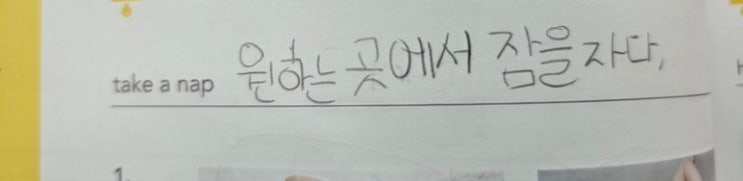 take a nap 원하는 곳에서 잠을 자다.
1.